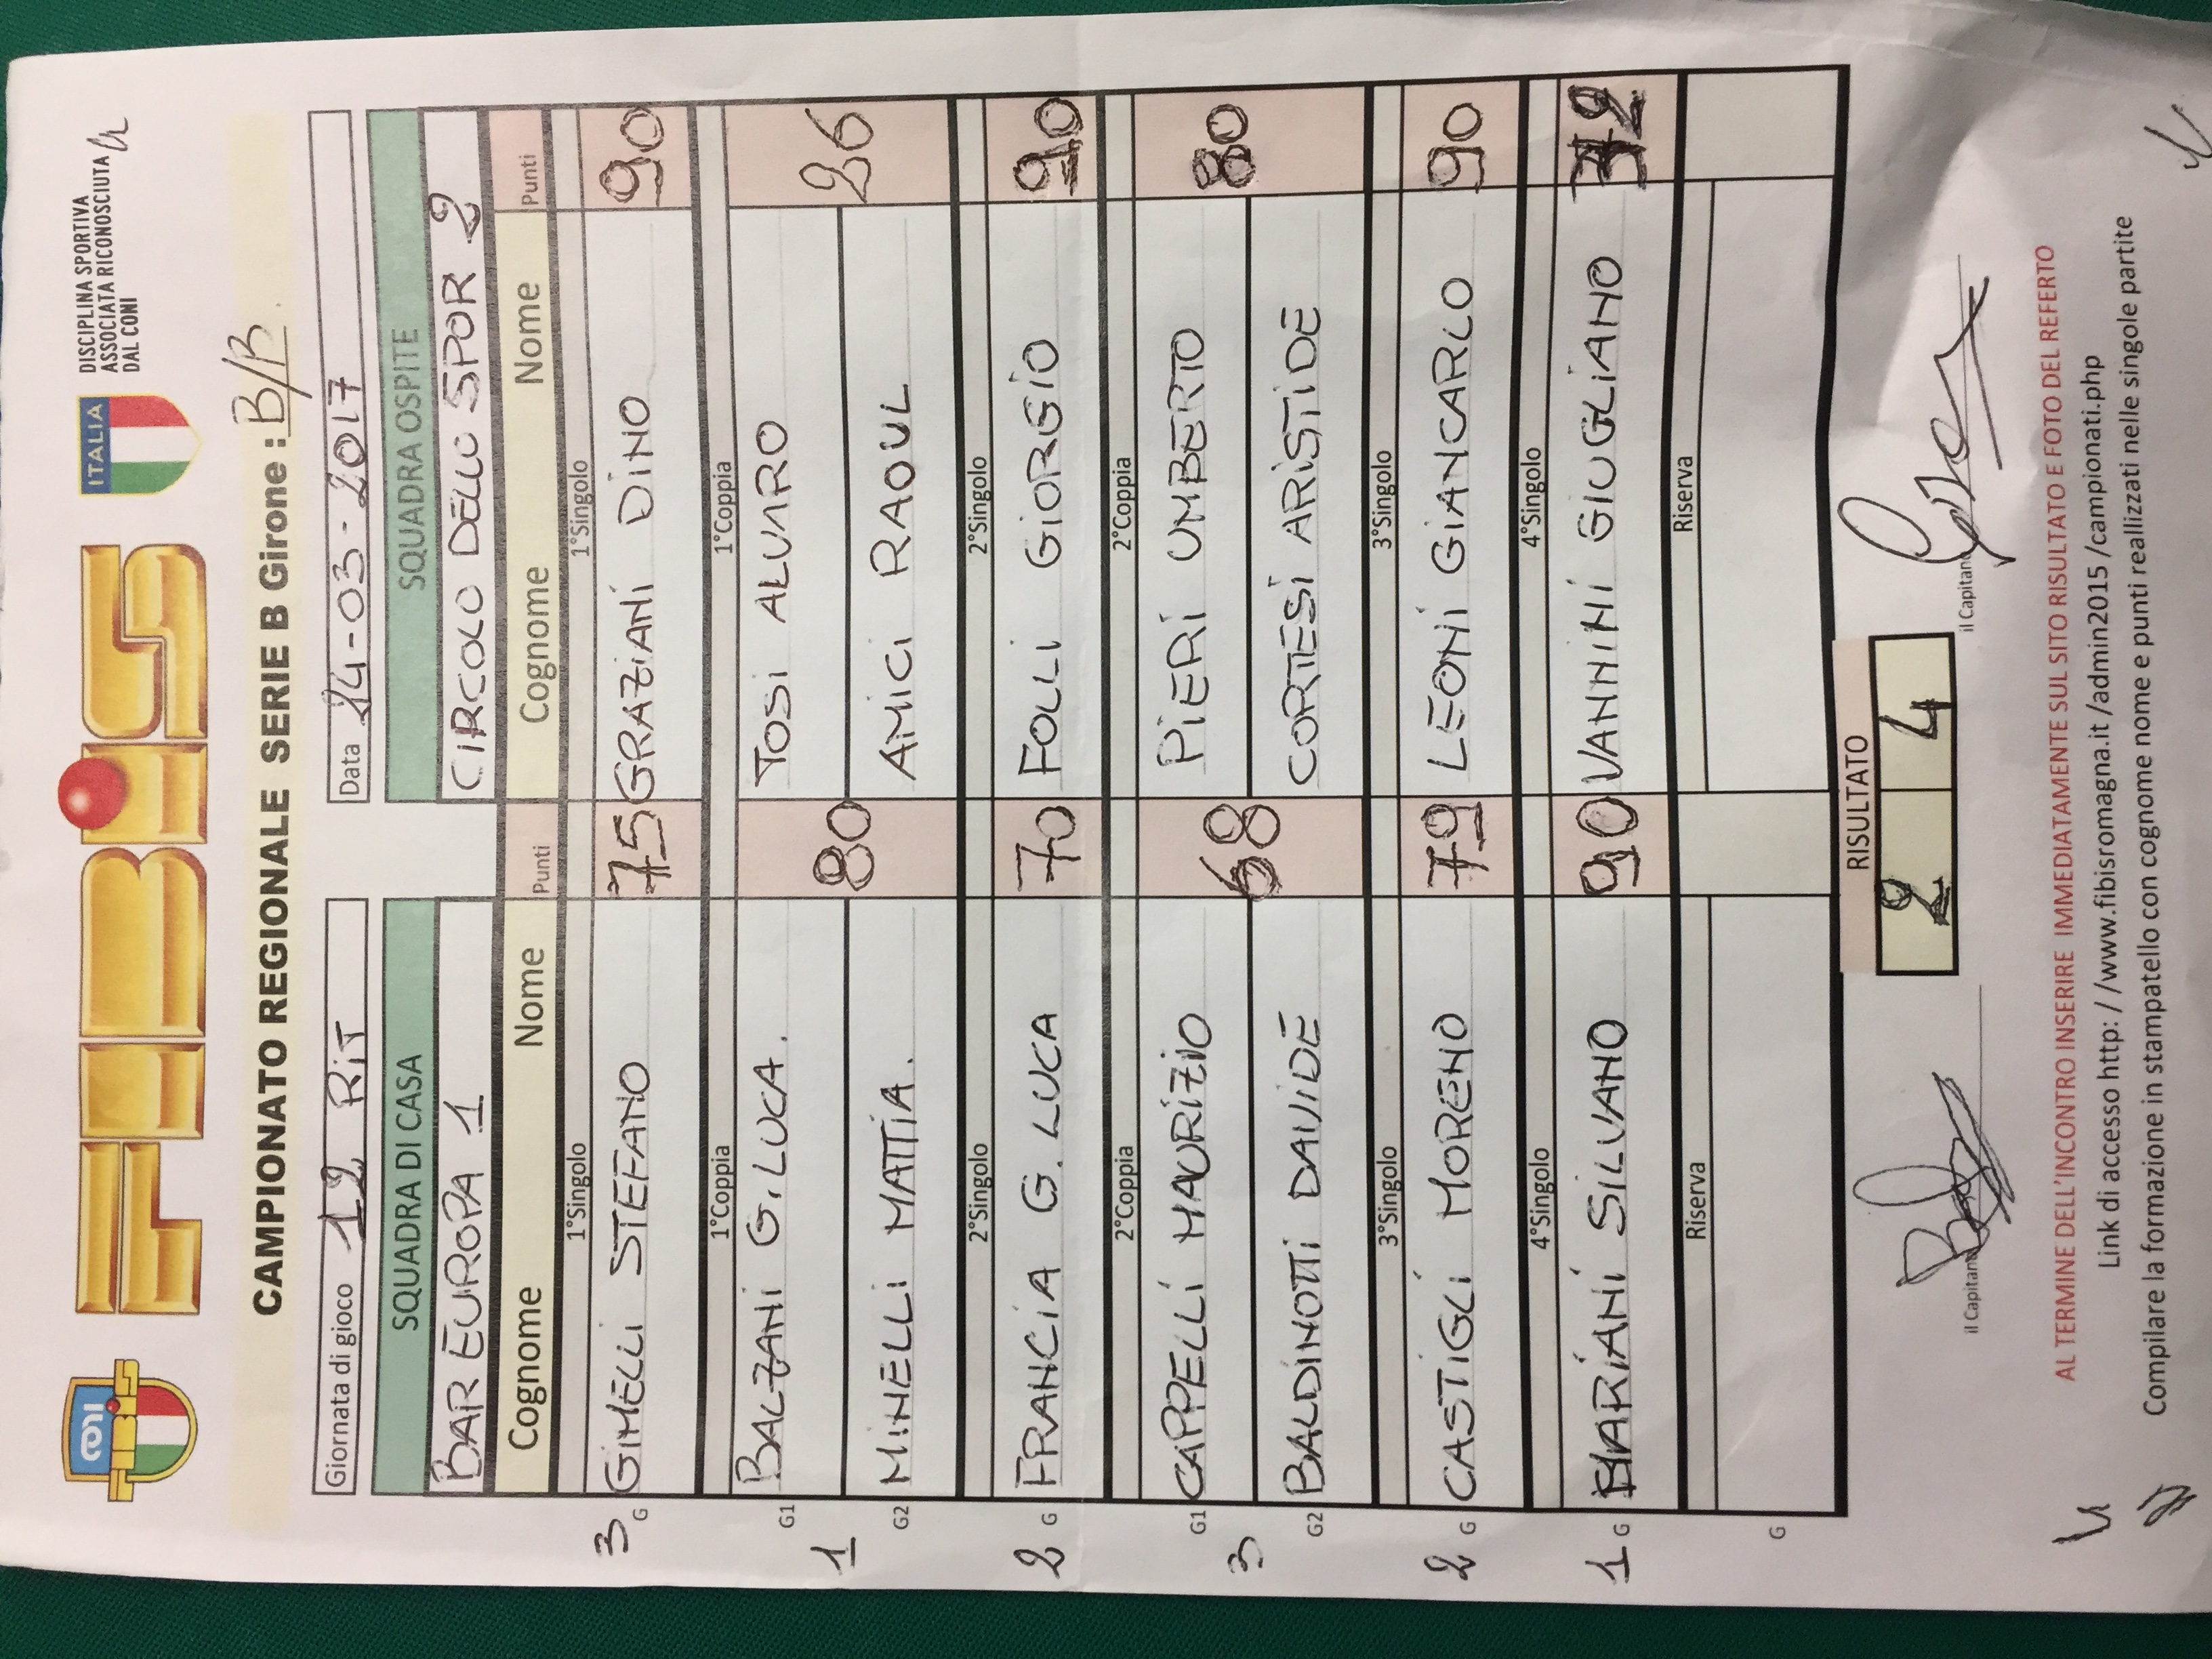 FIBiS
ITALIA
DISCIPLINA SPORTIVA
ASSOCIATA RICONOSCIUTA
DAL CONI
CAMPIONATO REGIONALE SERIE B Girone : B/B
Giornata di gioco 12 RiT
Data 14-03-2017
SQUADRA DI CASA SQUADRA OSPITE
BAR EUROPA 1 CIRCOLO DELLO SPOR 2
Cognome Nome Punti Cognome Nome Punti
1°Singolo 1°Singolo
3 G GiMELLi STEFANO 75 GRAZiANi DiNO 90
1°Coppia 1°Coppia
G1 BALZANi G.LUCA. TOSi ALVARO
1 80 26
G2 MiNELLi MATTiA. AMiCi RAOUL
2°Singolo 2°Singolo
2 G FRANCiA G.LUCA 70 FOLLi GiORGiO 90
2°Coppia 2°Coppia
G1 CAPPELLi MAURiZiO PiERi UMBERTO
3 68 80
G2 BALDiNOTTi DAViDE CORTESi ARiSTiDE
3°Singolo 3°Singolo
2 G CASTiGLi MORENO 79 LEONi GiANCARLO 90
4°Singolo 4°Singolo
1 G MARiANi SiLVANO 90 VANNiNi GiUGLiANO 72
Riserva Riserva
G
RISULTATO
2 4
il Capitano il Capitano
AL TERMINE DELL'INCONTRO INSERIRE IMMEDIATAMENTE SUL SITO RISULTATO E FOTO DEL REFERTO
Link di accesso http: / /www.fibisromagna.it /admin2015 /campionati.php
Compilare la formazione in stampatello con cognome nome e punti reallizzati nelle singole partite